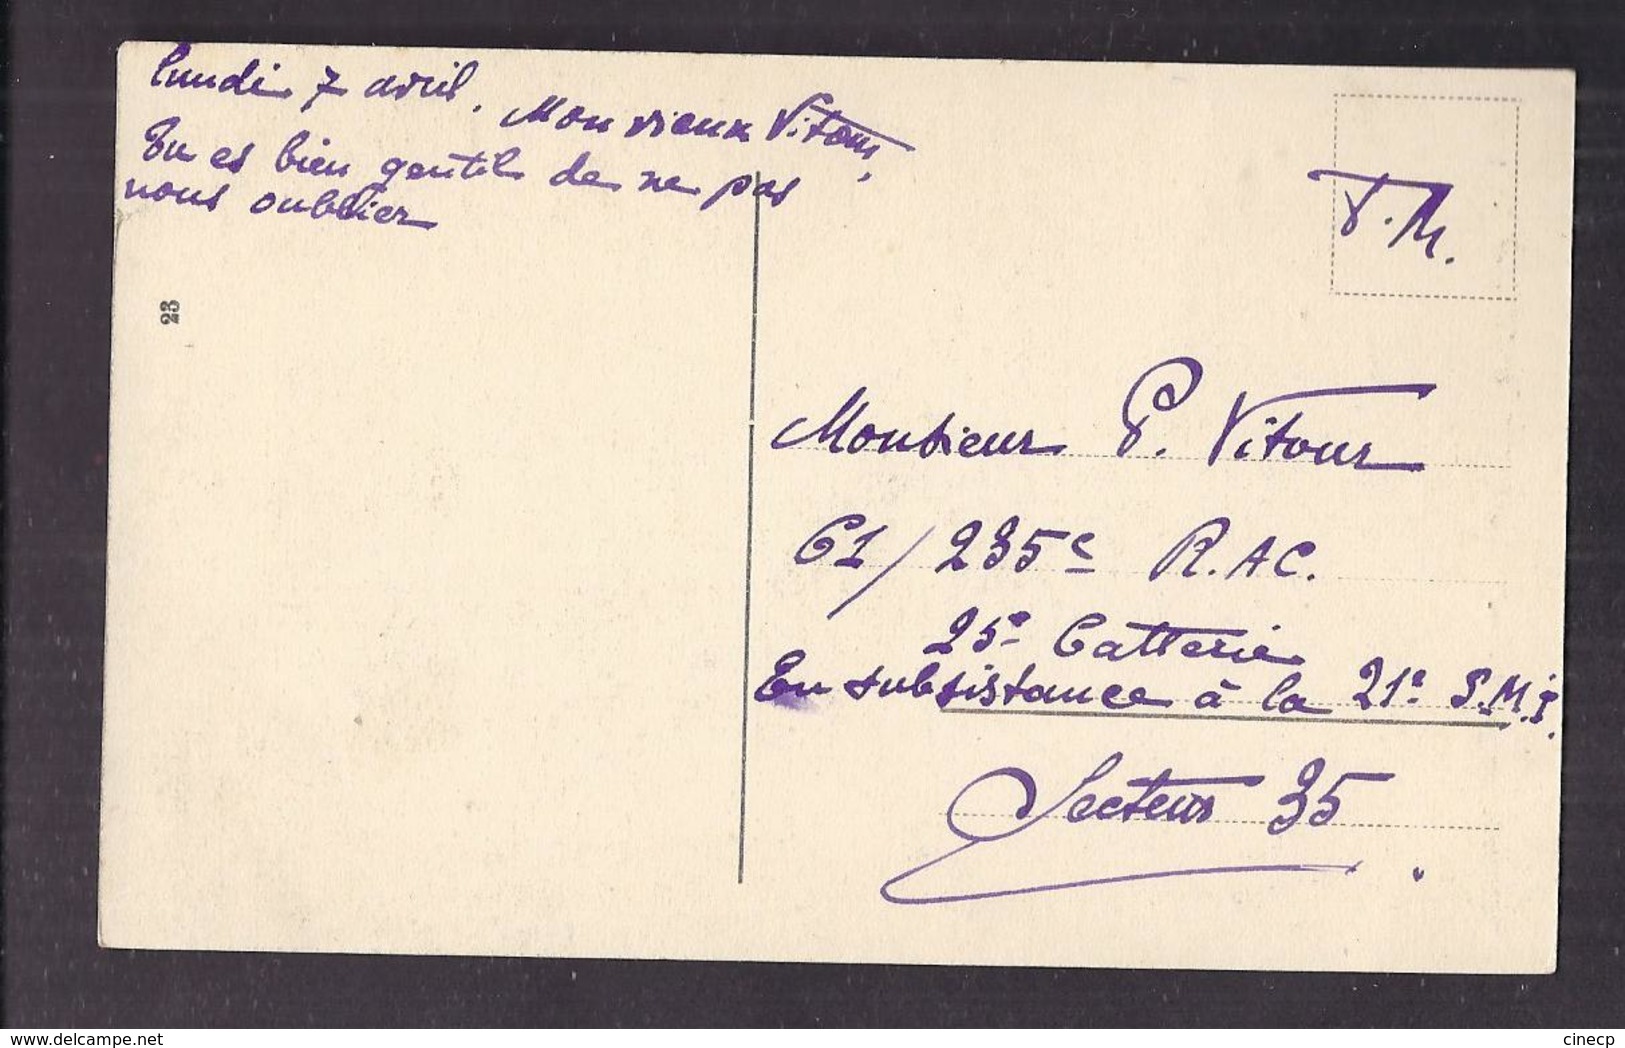 lundi 7 avril. Mon vieux Vitour,
Tu es bien gentil de ne pas
nous oublier
23
F.M.
Monsieur P. Vitour
61/235e R.A.C.
25e Batterie
En subsistance à la 21e S.M.I.
Secteur 35
www.delcampe.net
cinecp